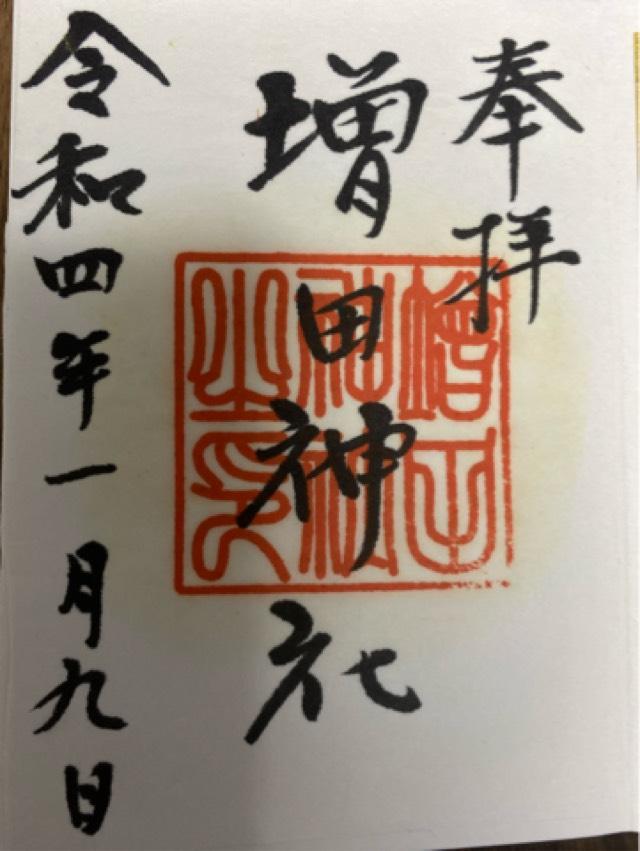 奉拝
増田神社
令和四年一月九日